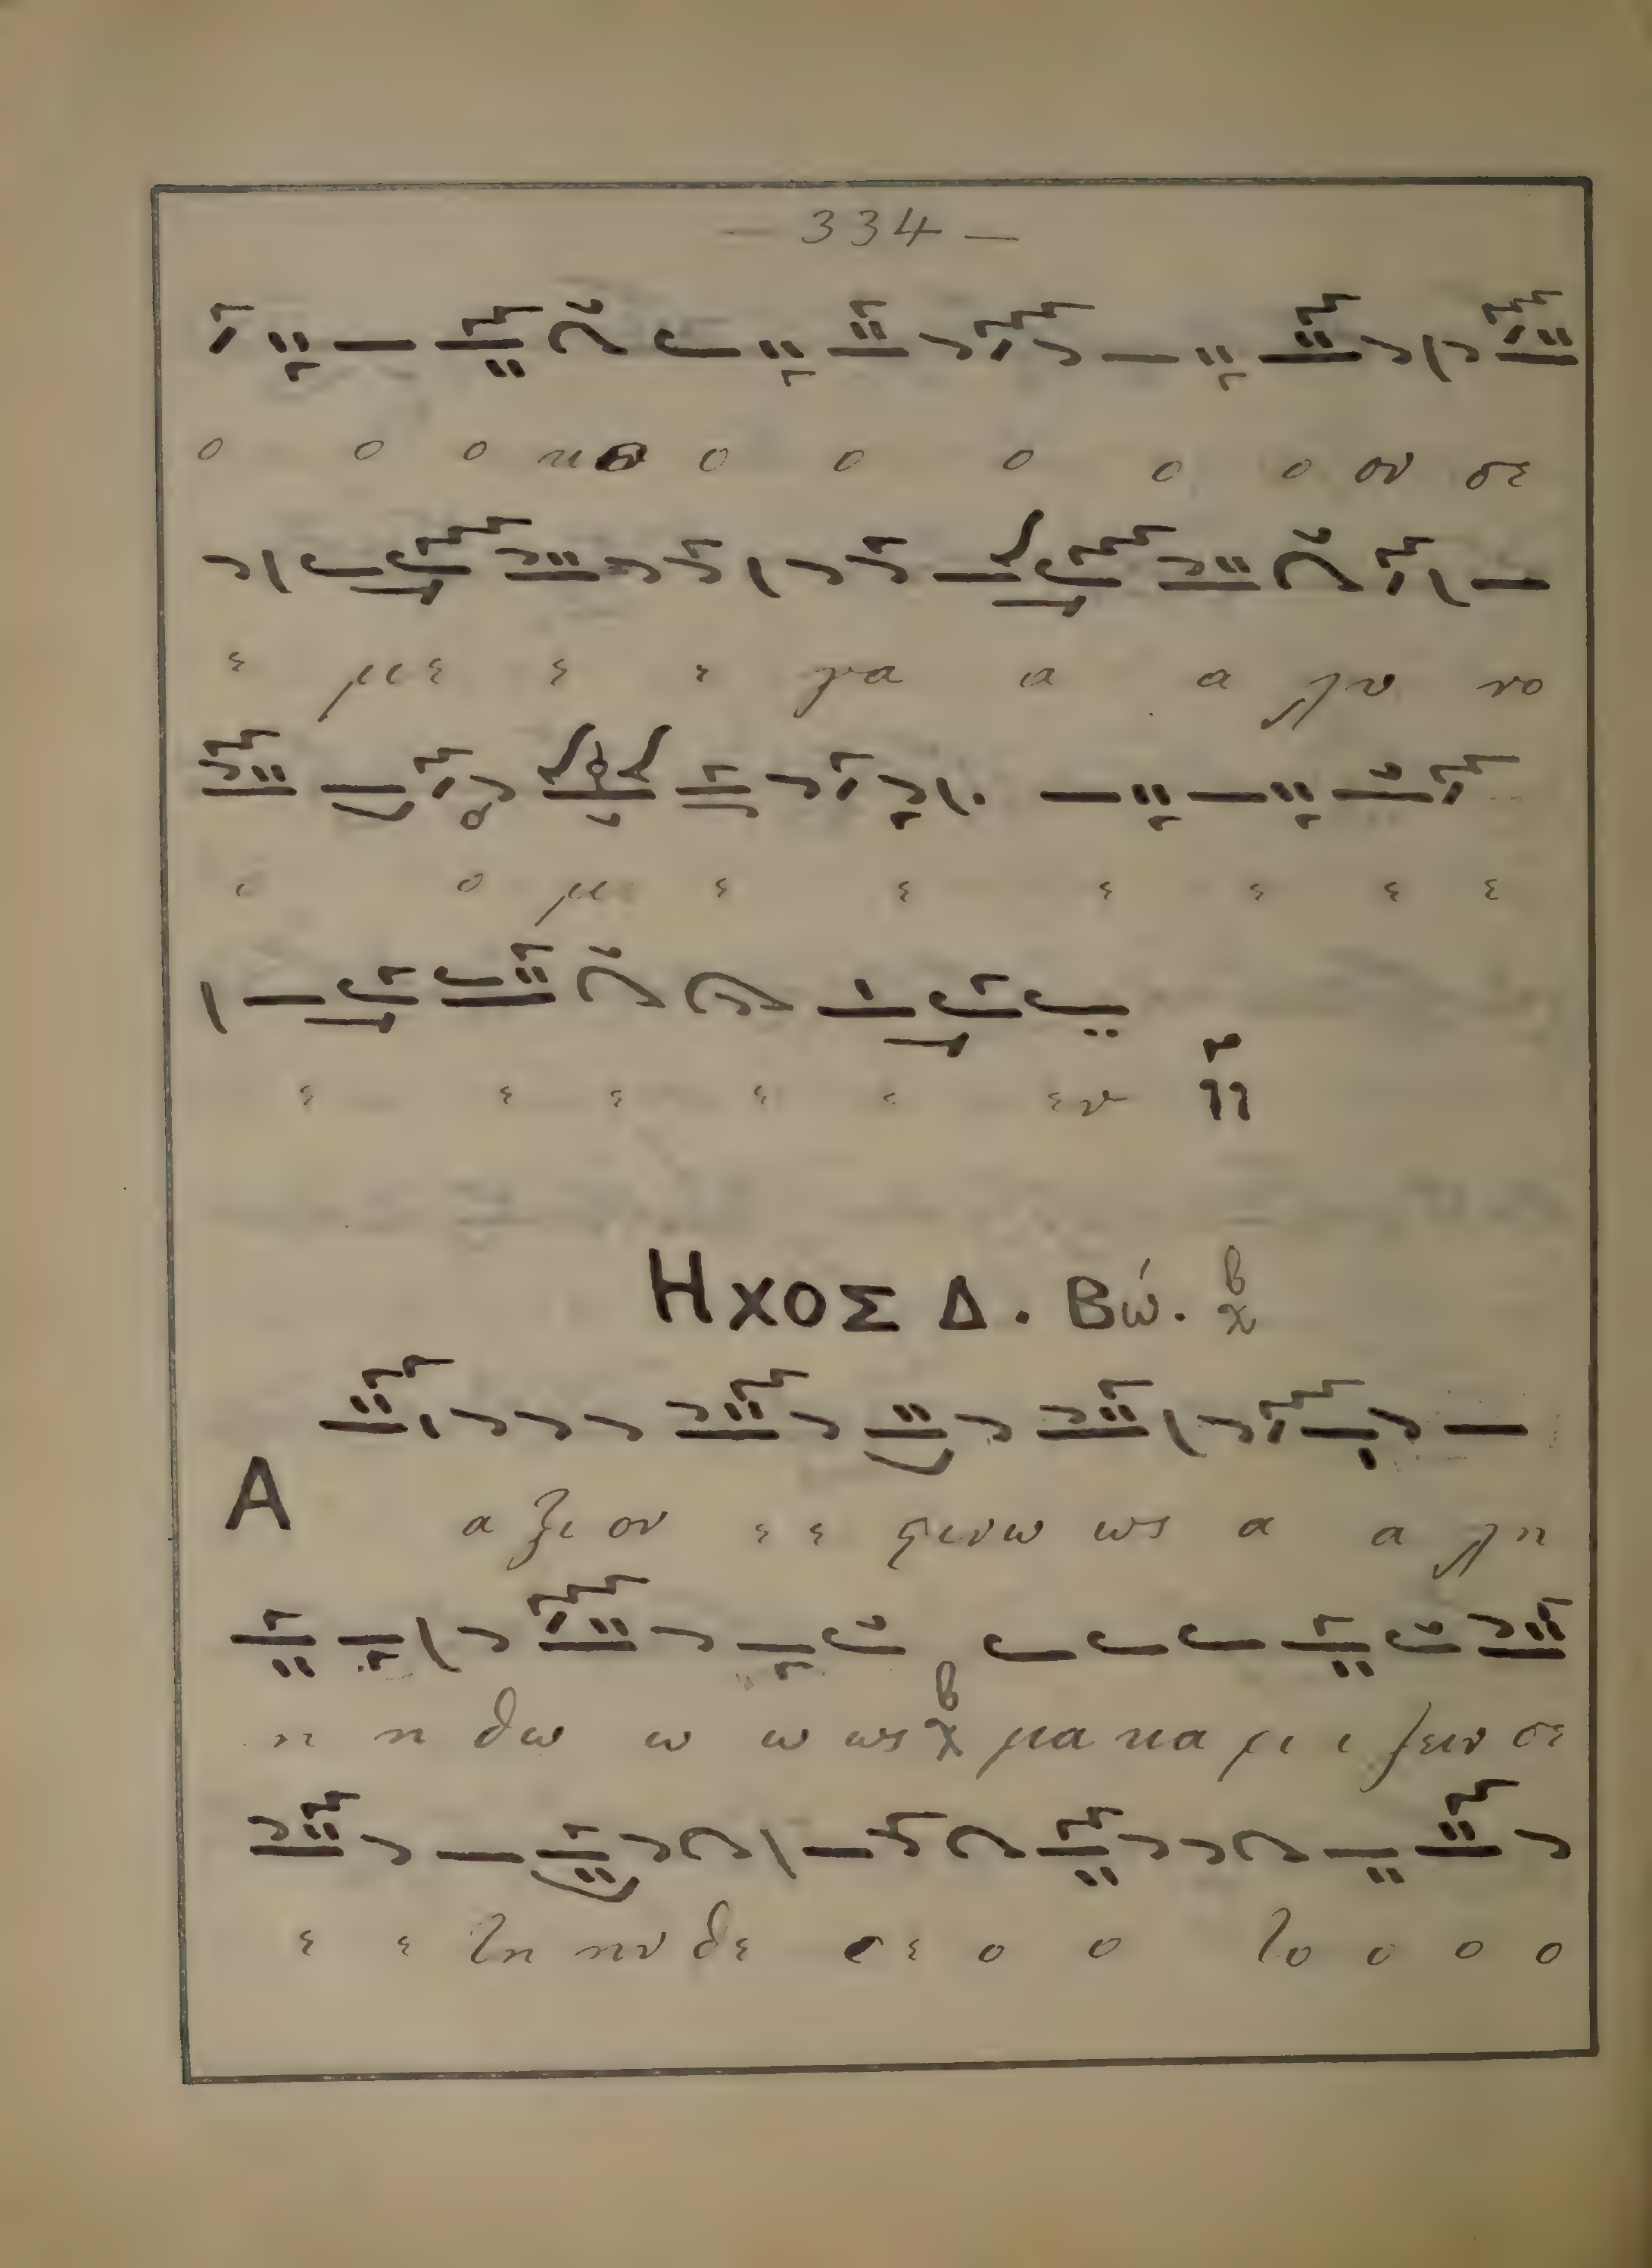 — 334 —
ο ο ο κο ο ο ο ο ο ον σε
ε με ε ε γα α α λυ νο
ο ο με ε ε ε ε ε ε
ε ε ε ε ε εν
Ηχος Δ. Βώ. β χ
Α α ξι ον ε ε στινω ως α α λη
η η θω ω ω ως β χ μα κα ρι ι ζειν σε
ε ε τη ην θε ε ε ο ο το ο ο ο